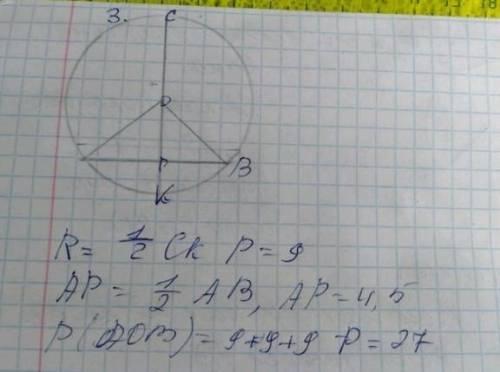 3. C
O
P B
K
R = 1/2 CK P = 9
AP = 1/2 AB, AP = 4,5
P(AOB) = 9+9+9 P = 27